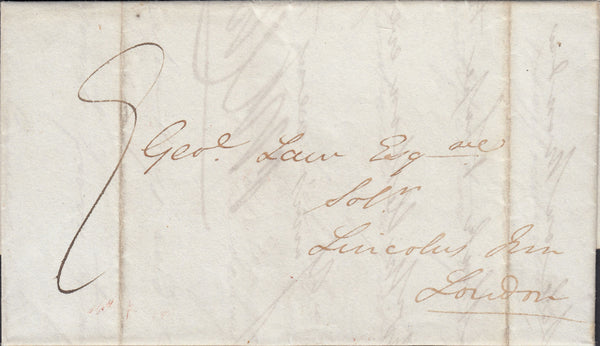 Geoe Law Esqre
Solr
Lincolns Inn
London